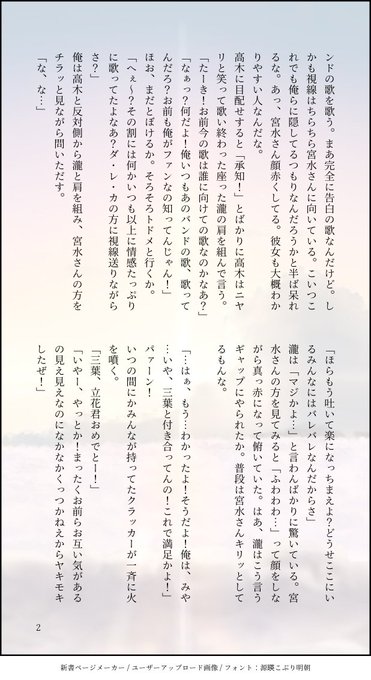 ンドの歌を歌う。まあ完全に告白の歌なんだけど。し
かも視線はちらちら宮水さんに向いている。こいつこ
れでも俺らに隠してるつもりなんだろうかと半ば呆れ
るな。あっ、宮水さん顔赤くしてる。彼女も大概わか
りやすい人なんだな。
高木に目配せすると「承知！」とばかりに高木はニヤ
リと笑って歌い終わった座った瀧の肩を組んで言う。
「たーき！お前今の歌は誰に向けての歌なのかなあ？」
「なぁっ？何だよ！俺いつもあのバンドの歌、歌って
んだろ？お前も俺がファンなの知ってんじゃん！」
ほお、まだとぼけるか。そろそろトドメと行くか。
「へぇ～？その割には何かいつも以上に情感たっぷり
に歌ってたよなあ？ダ・レ・カの方に視線送りながら
さ？」
俺は高木と反対側から瀧と肩を組み、宮水さんの方を
チラッと見ながら問いただす。
「な、な…」
「ほらもう吐いて楽になっちまえよ？どうせここにい
るみんなにはバレバレなんだからさ」
瀧は「マジかよ…」と言わんばかりに驚いている。宮
水さんの方を見てみると「ふわわわ…」って顔をしな
がら真っ赤になって俯いていた。はあ、瀧はこう言う
ギャップにやられたか。普段は宮水さんキリッとして
るもんな。
「…はぁ、もう…わかったよ！そうだよ！俺は、みや
…いや、三葉と付き合ってんの！これで満足かよ！」
パァーン！
いつの間にかみんなが持ってたクラッカーが一斉に火
を噴く。
「三葉、立花君おめでとー！」
「いやー、やっとか！まったくお前らお互い気がある
の見え見えなのになかなかくっつかねえからヤキモキ
したぜ！」
2
新書ページメーカー / ユーザーアップロード画像 / フォント：源暎こぶり明朝